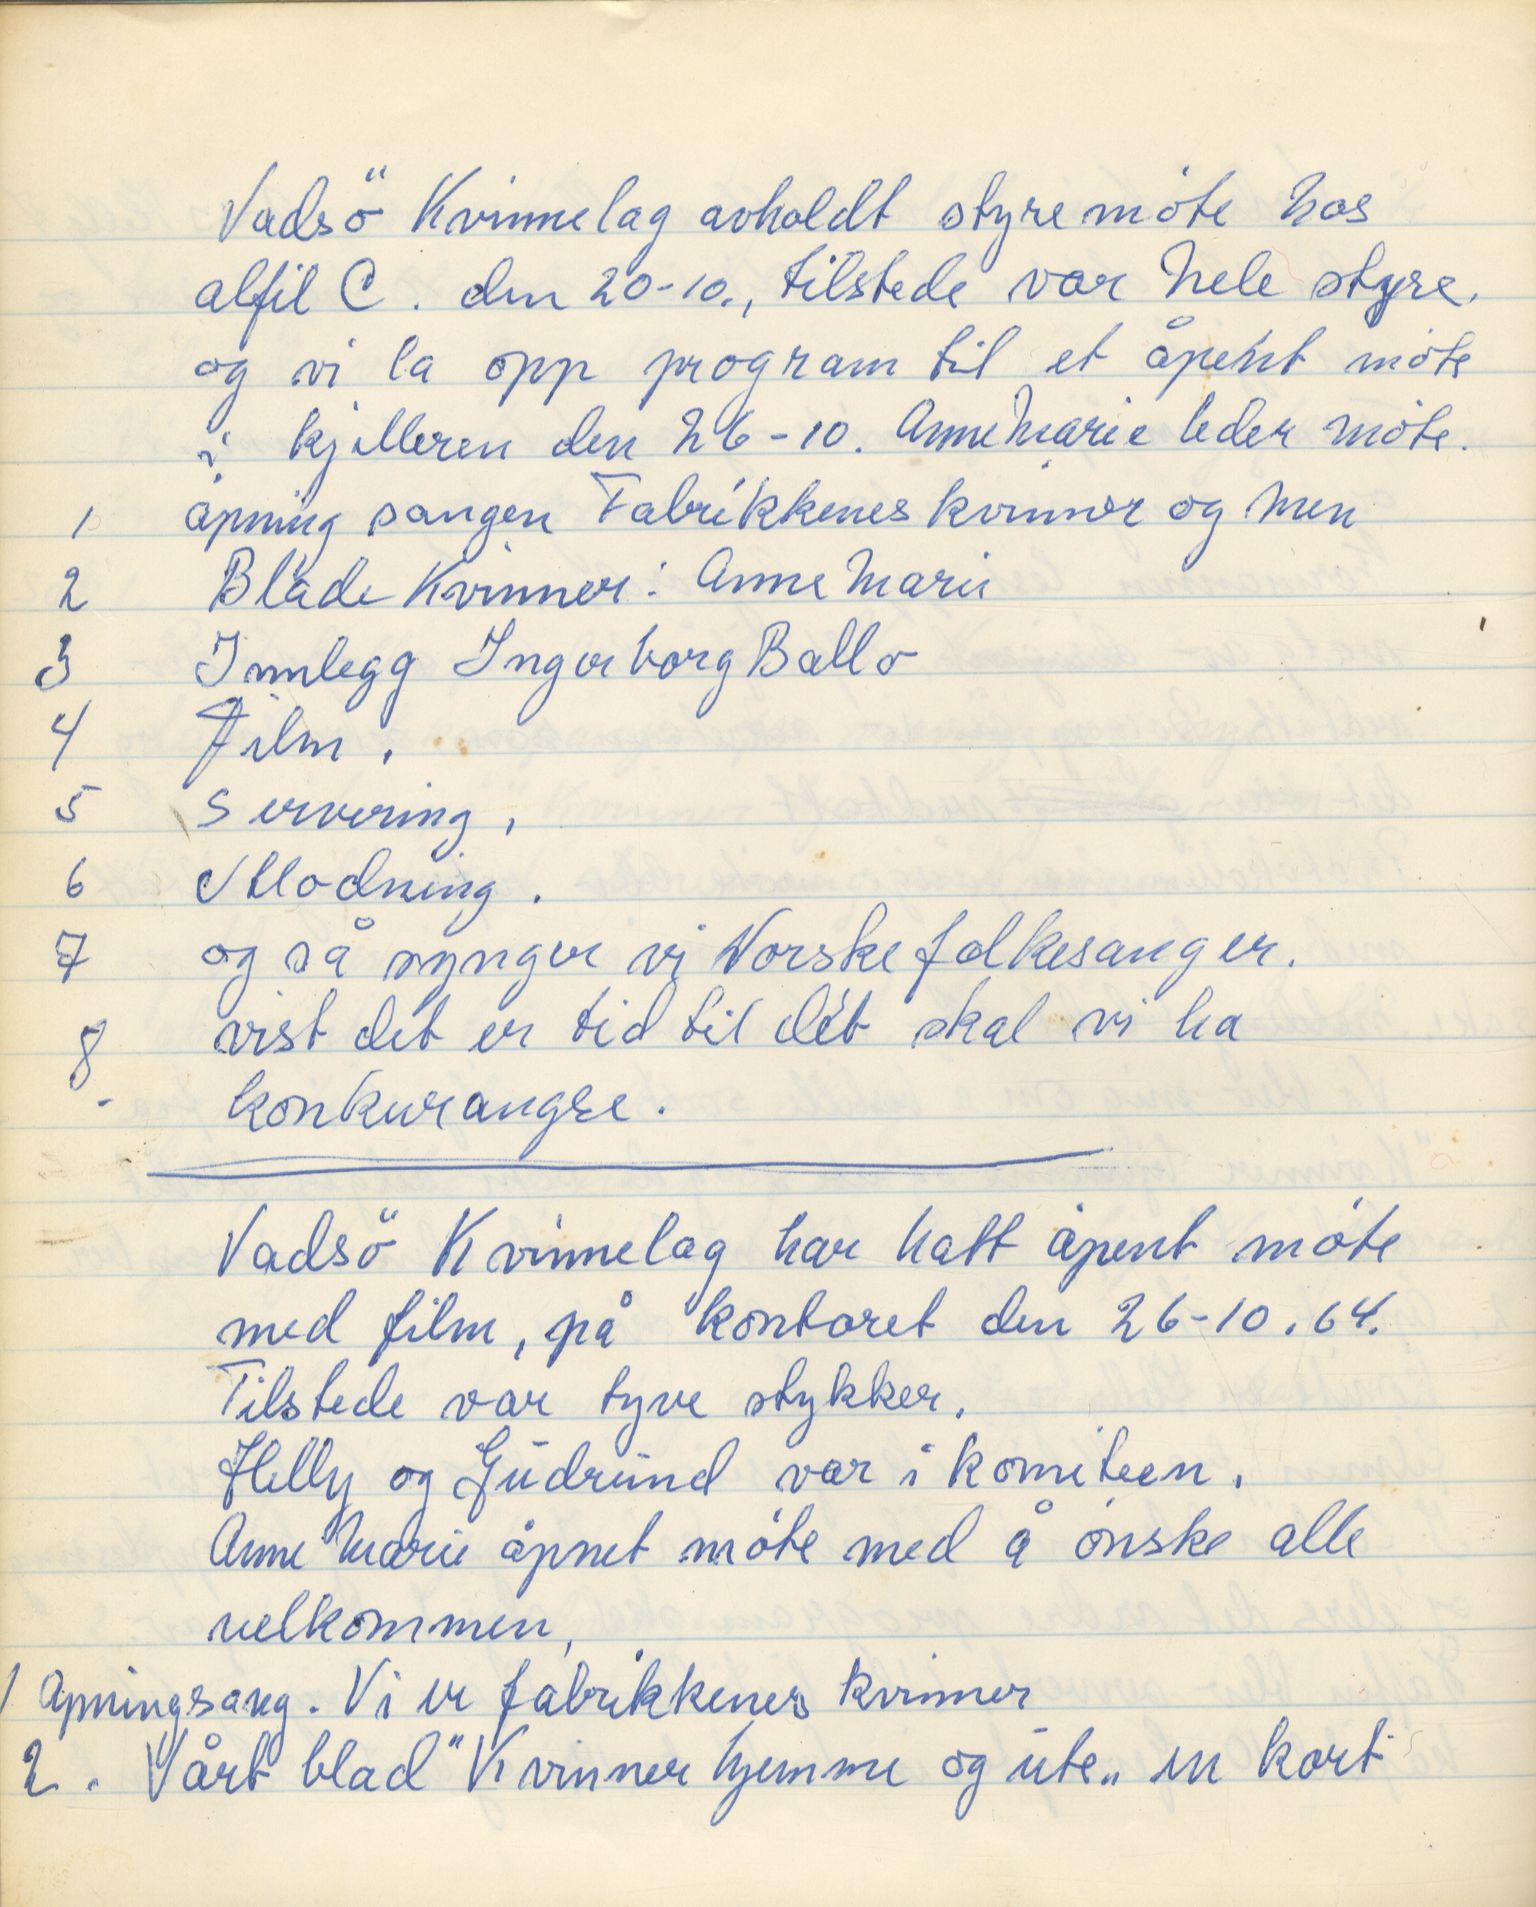 Vadsö Kvinnelag avholdt styremöte hos
alfil C. den 20-10., tilstede var hele styre.
og vi la opp program til et åpent möte
i kjelleren den 26-10. AnneMarie leder möte.
1 åpning sangen Fabrikkenes kvinner og men
2 Blade Kvinner: Anne Marie
3 Innlegg Ingerborg Ballo
4 Film.
5 Servering,
6 Utlodning.
7 og så synger vi Norske folkesanger.
8. vist det er tid til det skal vi ha
konkurangse.
Vadsö Kvinnelag har hatt åpent möte
med film, på kontoret den 26-10.64.
Tilstede var tyve stykker.
Helly og Gudrund var i komiteen.
Anne Marie åpnet möte med å önske alle
velkommen,
1 Åpningsang. Vi er fabrikkenes kvinner
2. Vårt blad "Kvinner hjemme og ute„ en kort